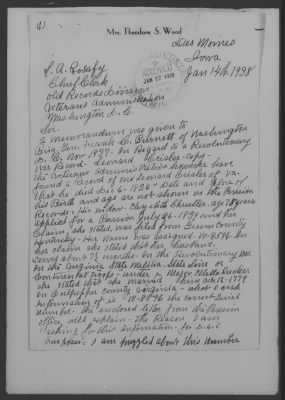 (1)
Mrs. Theodore S. Wood
Des Moines
Iowa
Jan 14th, 1938
S. A. Rossfy
Chief Clerk
Old Records Division
Veterans Administration
Washington D.C.
RECEIVED
JAN 17 1938
Sir
A memorandum was given to
Brig. Gen. Frank C. Burnett of Washington
D.C. Nov 1937. In Regard to a Revolutionary
War Record. Leonard Crisler -
the Veterans Administration
found a Record of one Leonard Crisler of Va.
that he died Dec 6 - 1824 - Date and place of
his Birth and age are not shown in the Pension
Record. His widow Margaret Chrisler. age 78 years
applied for a Pension July 26 - 1839 and her
Claim, she stated, was filed from Greene County
Kentucky - Her Name was assigned W-8596. In
her claim she stated that her husband.
Served about 7½ months. In the Revolutionary War
in the Virginia State Militia, State line or
Continental troops - under a Major
She stated that she married him Oct 12 - 1779
in Culpepper County Virginia - what I need
Information of is W-8596 the correct Serial
Number - The enclosed letter from the Pension
office will explain - the Reason I am
asking for this Information - for D.A.R
purposes; I am puzzled about this Number